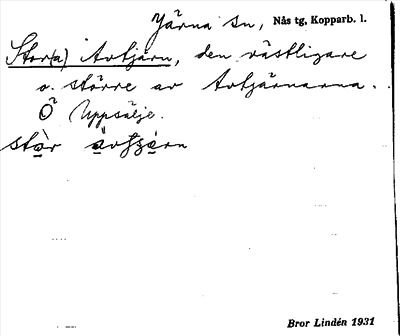 Järna sn, Nås tg, Kopparb. l.
Stor(a) Avtjärn, den västligare
o. större av Avtjärnarna.
Ö Uppsälje.
Bror Lindén 1931